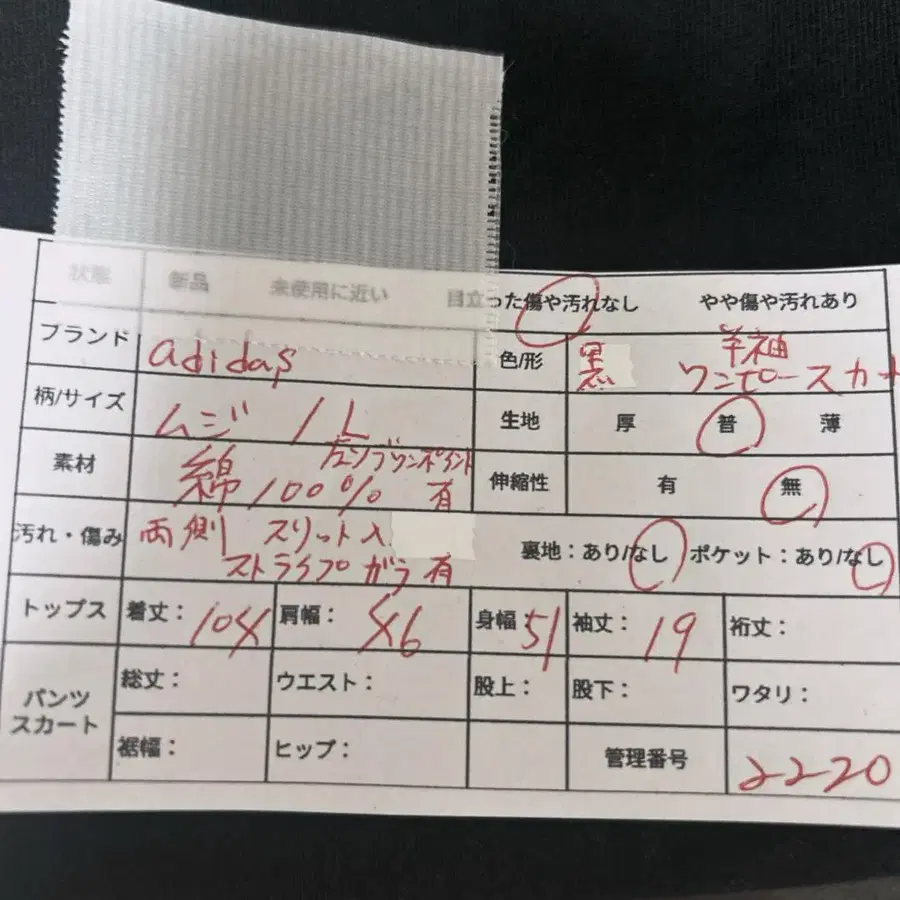 状態 新品 未使用に近い 目立った傷や汚れなし やや傷や汚れあり
ブランド adidas 色/形 黒 半袖
ワンピースカート
柄/サイズ ムジ / L 生地 厚 普 薄
ワンポイント
素材 綿 100% 有 伸縮性 有 無
汚れ・傷み 両側 スリット入 裏地:あり/なし ポケット:あり/なし
ストライプ ガラ 有
トップス 着丈: 104 肩幅: 46 身幅: 51 袖丈: 19 裄丈:
パンツ スカート 総丈: ウエスト: 股上: 股下: ワタリ:
裾幅: ヒップ: 管理番号 2220